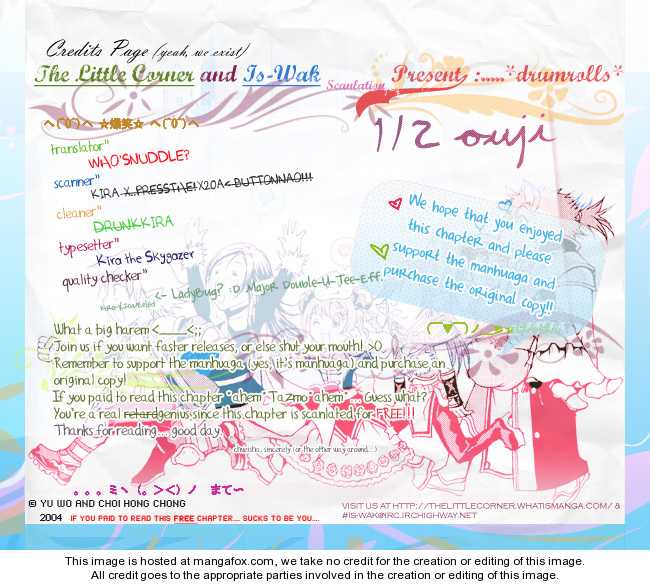 Credits Page (yeah, we exist)
The Little Corner and Is-Wak Scanlation Present, :.....*drumrolls*
ヘ(^0^)ヘ ☆爆笑☆ ヘ(^0^)ヘ
1/2 ouji
translator"
WHO'SNUDDLE?
scanner"
KIRA X..PRESSTHE!X20A< BUTTONNAO!!!!
cleaner"
DRUNKKIRA
typesetter"
Kira the Skygazer
quality checker"
<- LadyBug? :D Major Double-U-Tee-Eff.
We hope that you enjoyed
this chapter and please
support the manhuaga and
purchase the original copy!!
What a big harem <____<;;
Join us if you want faster releases, or else shut your mouth! >:O
Remember to support the manhuaga (yes, it's manhuaga) and purchase an
original copy!
If you paid to read this chapter *ahem* Tazmo *ahem*... Guess what?
You're a real retardgenius since this chapter is scanlated for FREE!!!
Thanks for reading... good day.
。。。ミヽ(。><)ノ まて~
© YU WO AND CHOI HONG CHONG
2004 IF YOU PAID TO READ THIS FREE CHAPTER... SUCKS TO BE YOU...
VISIT US AT HTTP://THELITTLECORNER.WHATISMANGA.COM/ &
#IS-WAK@IRC.IRCHIGHWAY.NET
This image is hosted at mangafox.com, we take no credit for the creation or editing of this image.
All credit goes to the appropriate parties involved in the creation or editing of this image.